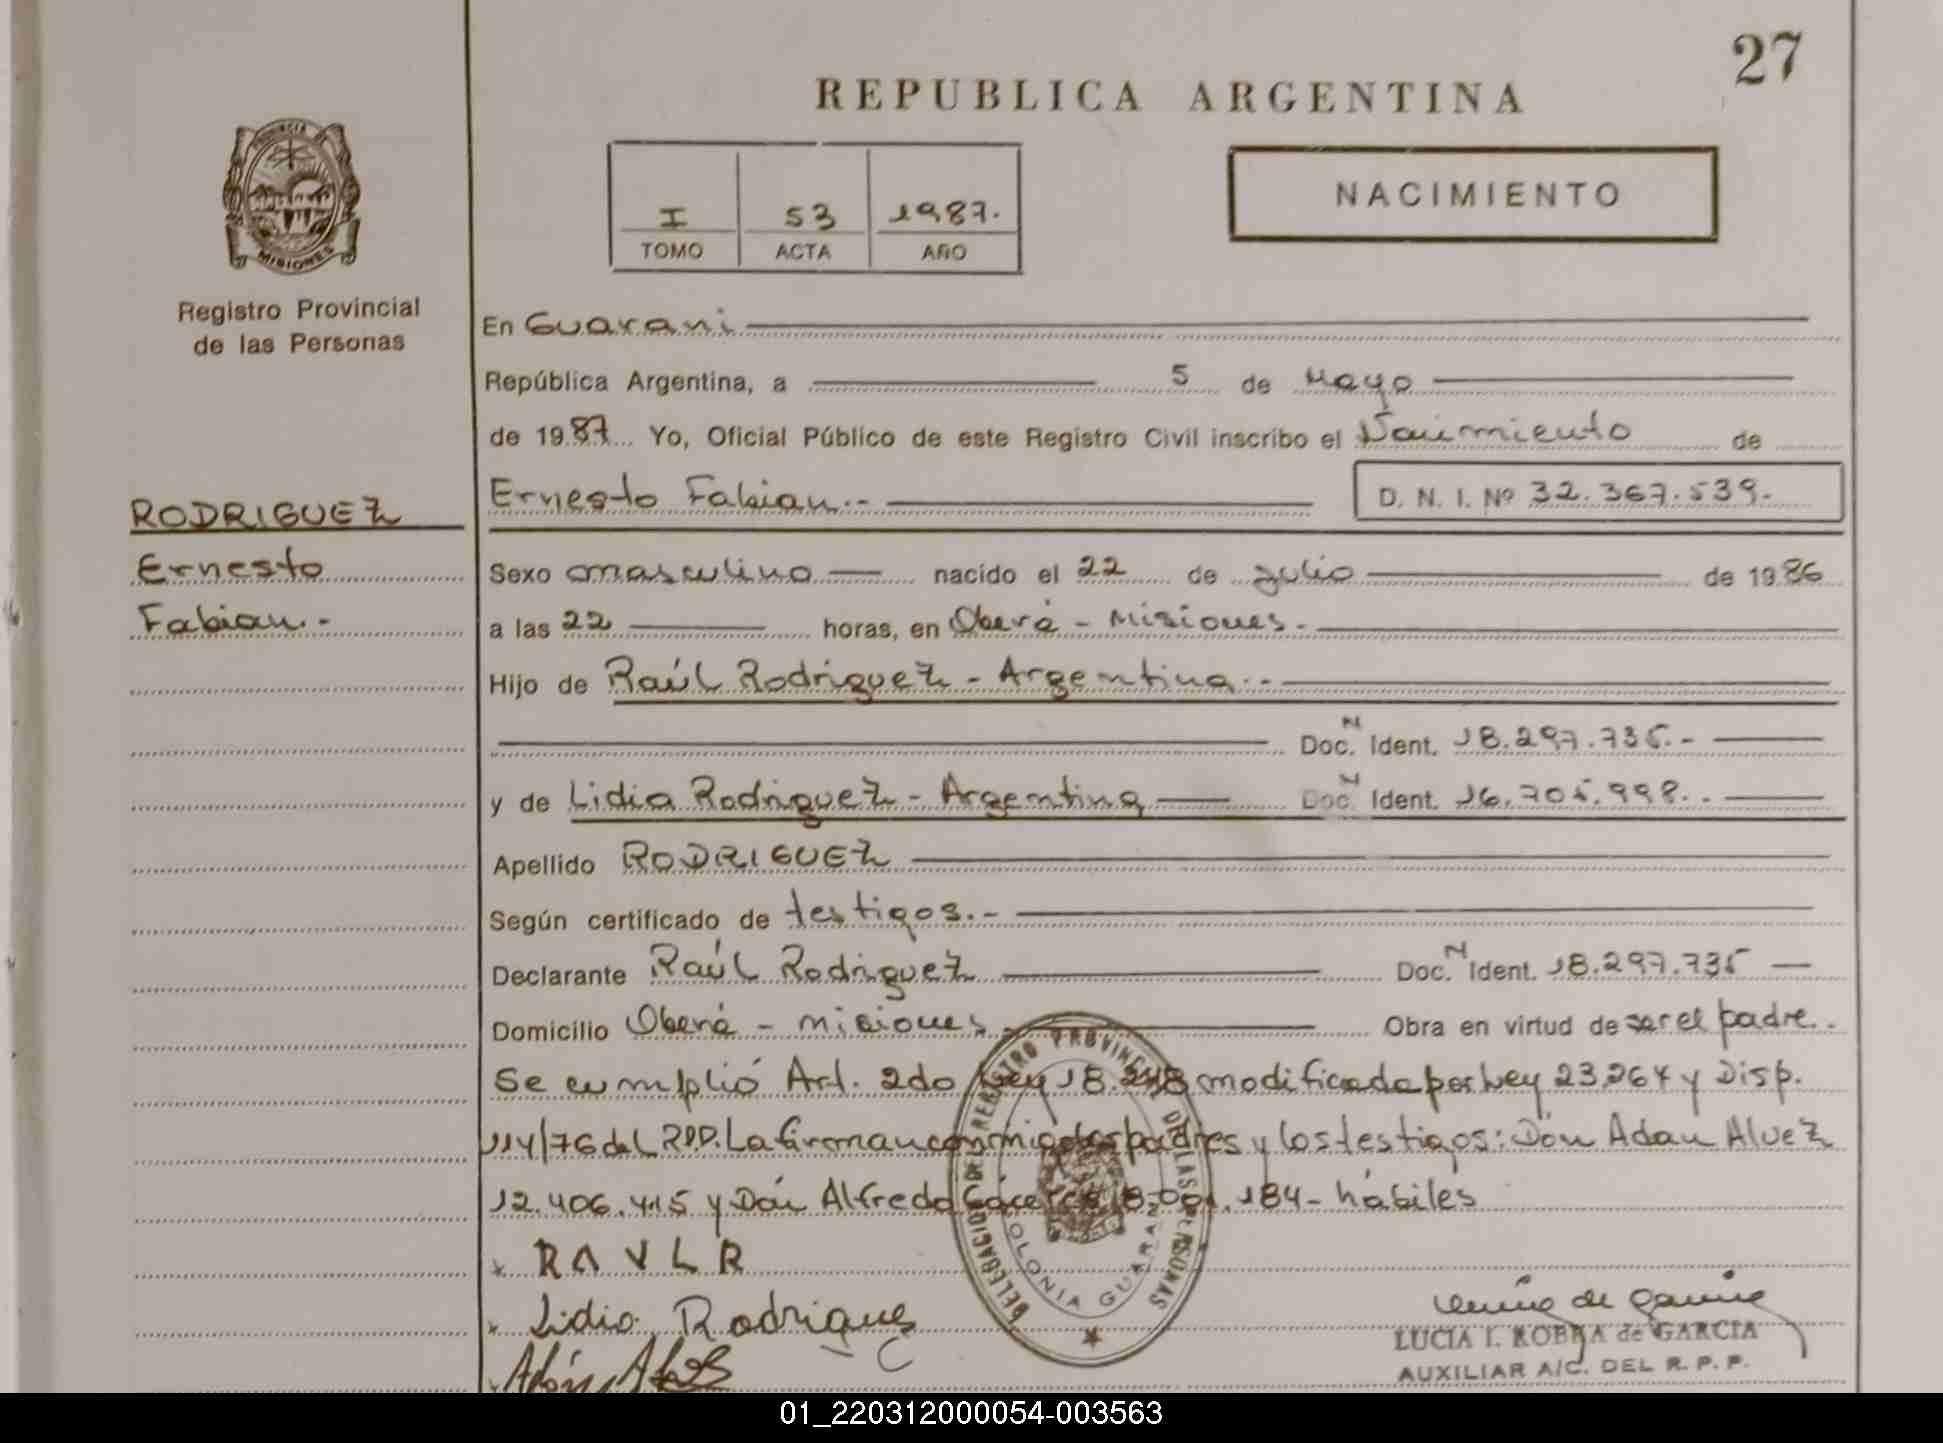 27
REPUBLICA ARGENTINA
PROVINCIA
MISIONES
I 53 1987.
TOMO ACTA AÑO
NACIMIENTO
Registro Provincial
de las Personas
En Guarani
República Argentina, a 5 de Mayo
de 1987 Yo, Oficial Público de este Registro Civil inscribo el Nacimiento de
Ernesto Fabian.- D. N. I. Nº 32.367.539.
RODRIGUEZ
Ernesto
Fabian.-
Sexo masculino nacido el 22 de Julio de 1986
a las 22 horas, en Oberá - Misiones.
Hijo de Raúl Rodriguez - Argentina.-
Doc. N Ident. 18.297.735.-
y de Lidia Rodriguez - Argentina Doc. N Ident. 16.705.998.
Apellido RODRIGUEZ
Según certificado de testigos.-
Declarante Raúl Rodriguez Doc. N Ident. 18.297.735
Domicilio Oberá - Misiones Obra en virtud de ser el padre.
Se cumplió Art. 2do Ley 18.248 modificada por Ley 23.264 y Disp.
114/76 del R.P.P. La firman conmigo los padres y los testigos: Don Adan Alvez
12.406.415 y Don Alfredo Cáceres 184 - hábiles
RAVL R
Lidia Rodrigues
DELEGACION DEL REGISTRO PROVINCIAL DE LAS PERSONAS
COLONIA GUARANI
LUCIA I. ROBRA de GARCIA
AUXILIAR A/C. DEL R. P. P.
01_220312000054-003563